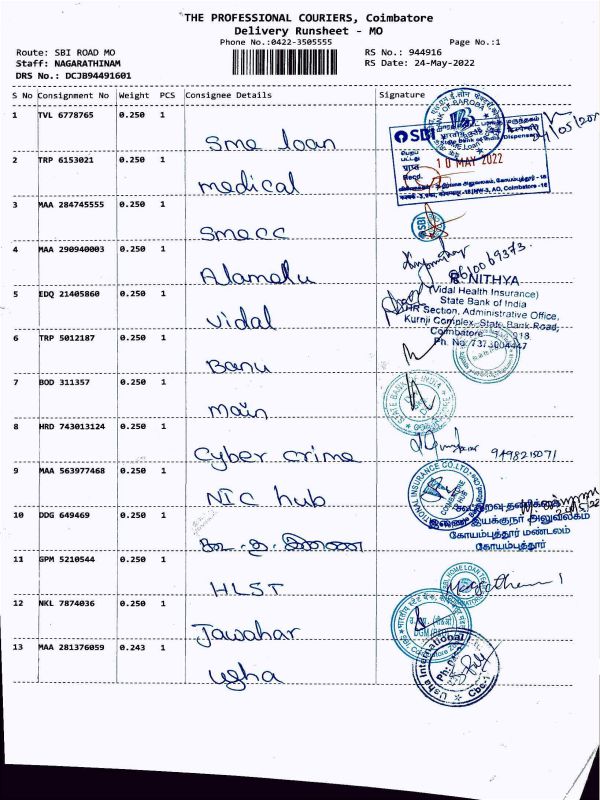 THE PROFESSIONAL COURIERS, Coimbatore
Delivery Runsheet - MO
Phone No.:0422-3505555
Page No.:1
Route: SBI ROAD MO
RS No.: 944916
Staff: NAGARATHINAM
RS Date: 24-May-2022
DRS No.: DCJB94491601
S No Consignment No Weight PCS Consignee Details Signature
1 TVL 6778765 0.250 1
Sme loan
SBI
10 MAY 2022
2 TRP 6153021 0.250 1
medical
3 MAA 284745555 0.250 1
SBI
Smecc
4 MAA 290940003 0.250 1
Alamelu
R. NITHYA
5 EDQ 21405860 0.250 1
(Vidal Health Insurance)
State Bank of India
HR Section, Administrative Office,
Vidal
Kurnji Complex, State Bank Road,
6 TRP 5012187 0.250 1
Coimbatore
Ph. No: 7373004447
Banu
7 BOD 311357 0.250 1
STATE BANK OF INDIA
Main
8 HRD 743013124 0.250 1
Cyber crime
9498215071
9 MAA 563977468 0.250 1
INSURANCE CO.LTD
COIMBATORE
HUB
NIC hub
10 DDG 649469 0.250 1
இயக்குநர் அலுவலகம்
கோயம்புத்தூர் மண்டலம்
கோயம்புத்தூர்
கூ.த.இணை
11 GPM 5210544 0.250 1
HLST
12 NKL 7874036 0.250 1
Jawahar
13 MAA 281376059 0.243 1
Usha International
Cbe-1
Usha